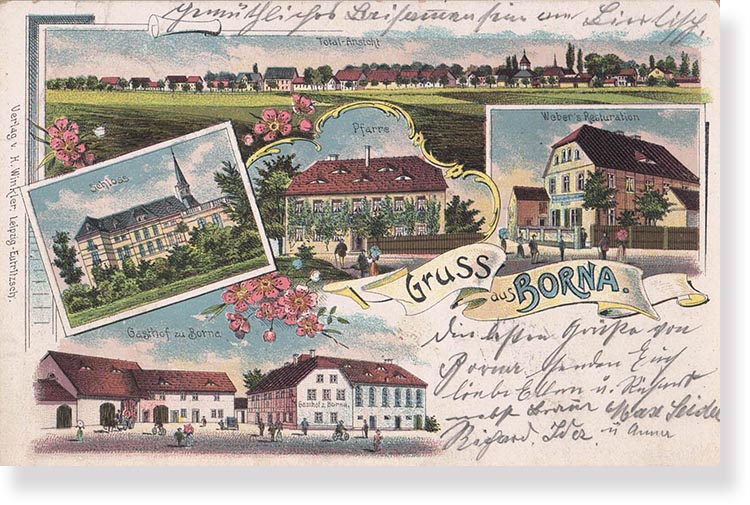 Gemütliches Beisammensein am Biertisch.
Total-Ansicht
Pfarre
Weber's Resturation
Schloss
Verlag v. H. Winkler, Leipzig-Eutritzsch.
Gruss
aus BORNA.
Gasthof zu Borna
Gasthof z. Borna.
Die besten Grüße von
Borna senden Euch
liebe Eltern u.
nebst Max Seidel
Richard, Ida u Anna